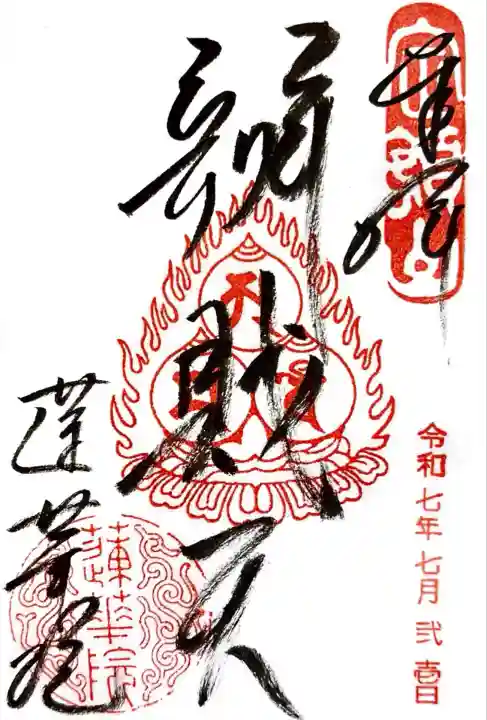 奉拝
令和七年七月弐壱日
辨財天
蓮華院
蓮華院